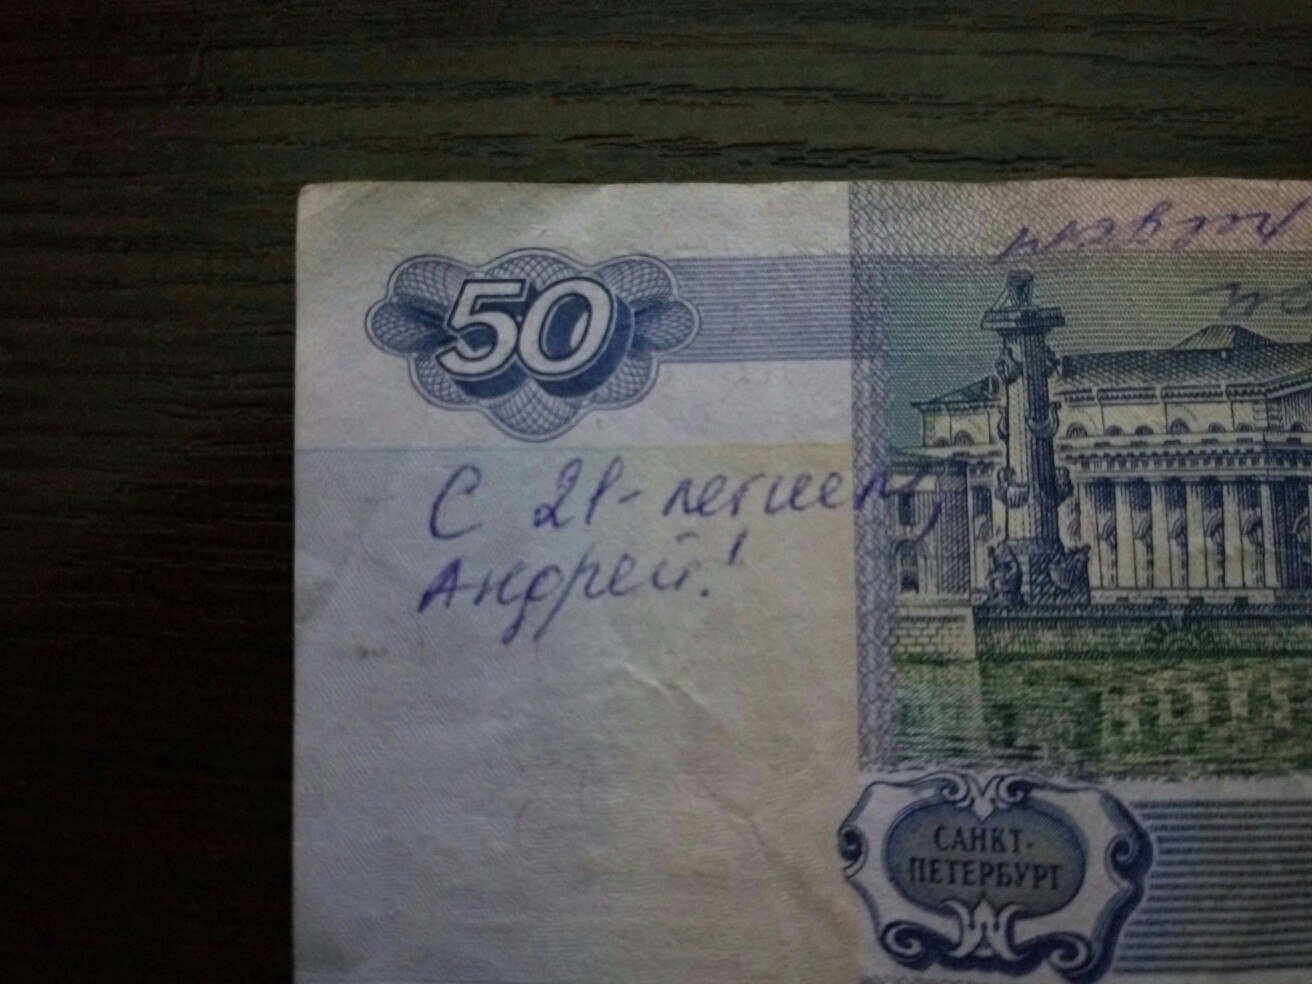 50
С 21-летием,
Андрей!
САНКТ-
ПЕТЕРБУРГ